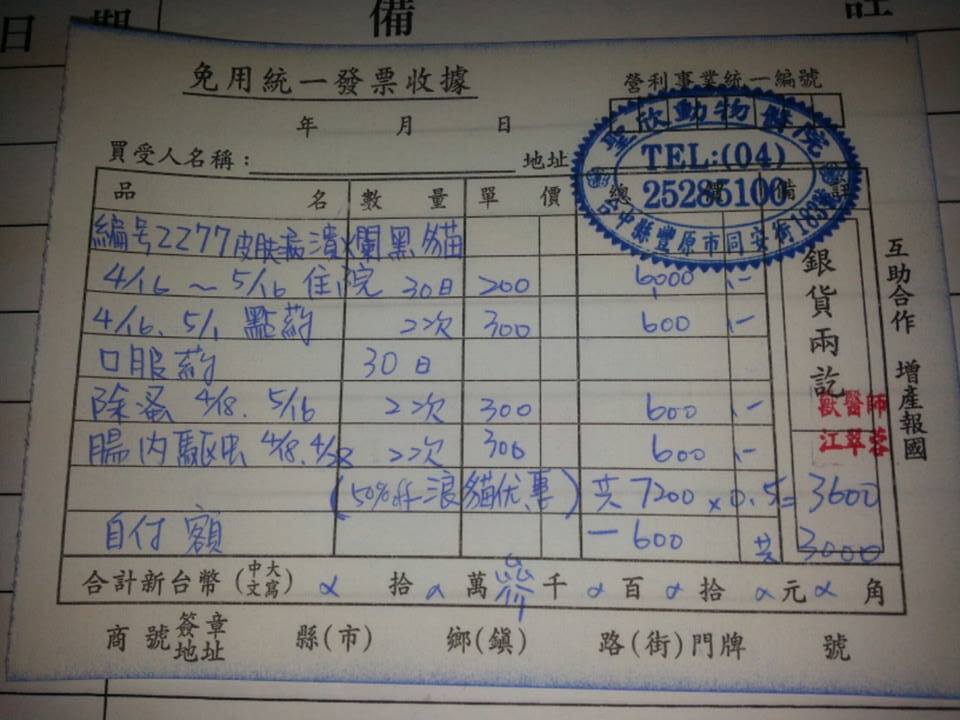 日 期 備 註
免用統一發票收據
營利事業統一編號
年 月 日
買受人名稱: 地址
聖欣動物醫院
TEL:(04)
25285100
台中縣豐原市同安街183號
品 名 數 量 單 價 總 價 備 註
編号2277皮肤病潰爛黑貓
4/16 ~ 5/16 住院 30日 200 6000 ,-
4/16、5/1 點葯 2次 300 600 ,-
口服葯 30日
除蚤 4/18. 5/16 2次 300 600 ,-
腸内驅虫 4/18. 4/28 2次 300 600 ,-
(50% off 浪貓优惠) 共 7200 × 0.5 = 3600
自付額 - 600 共 3000
銀貨兩訖
獸醫師
江翠蓉
互助合作 增產報國
合計新台幣(中文大寫) α 拾 α 萬 參 千 α 百 α 拾 α 元 α 角
商號簽章地址 縣(市) 鄉(鎮) 路(街)門牌 號